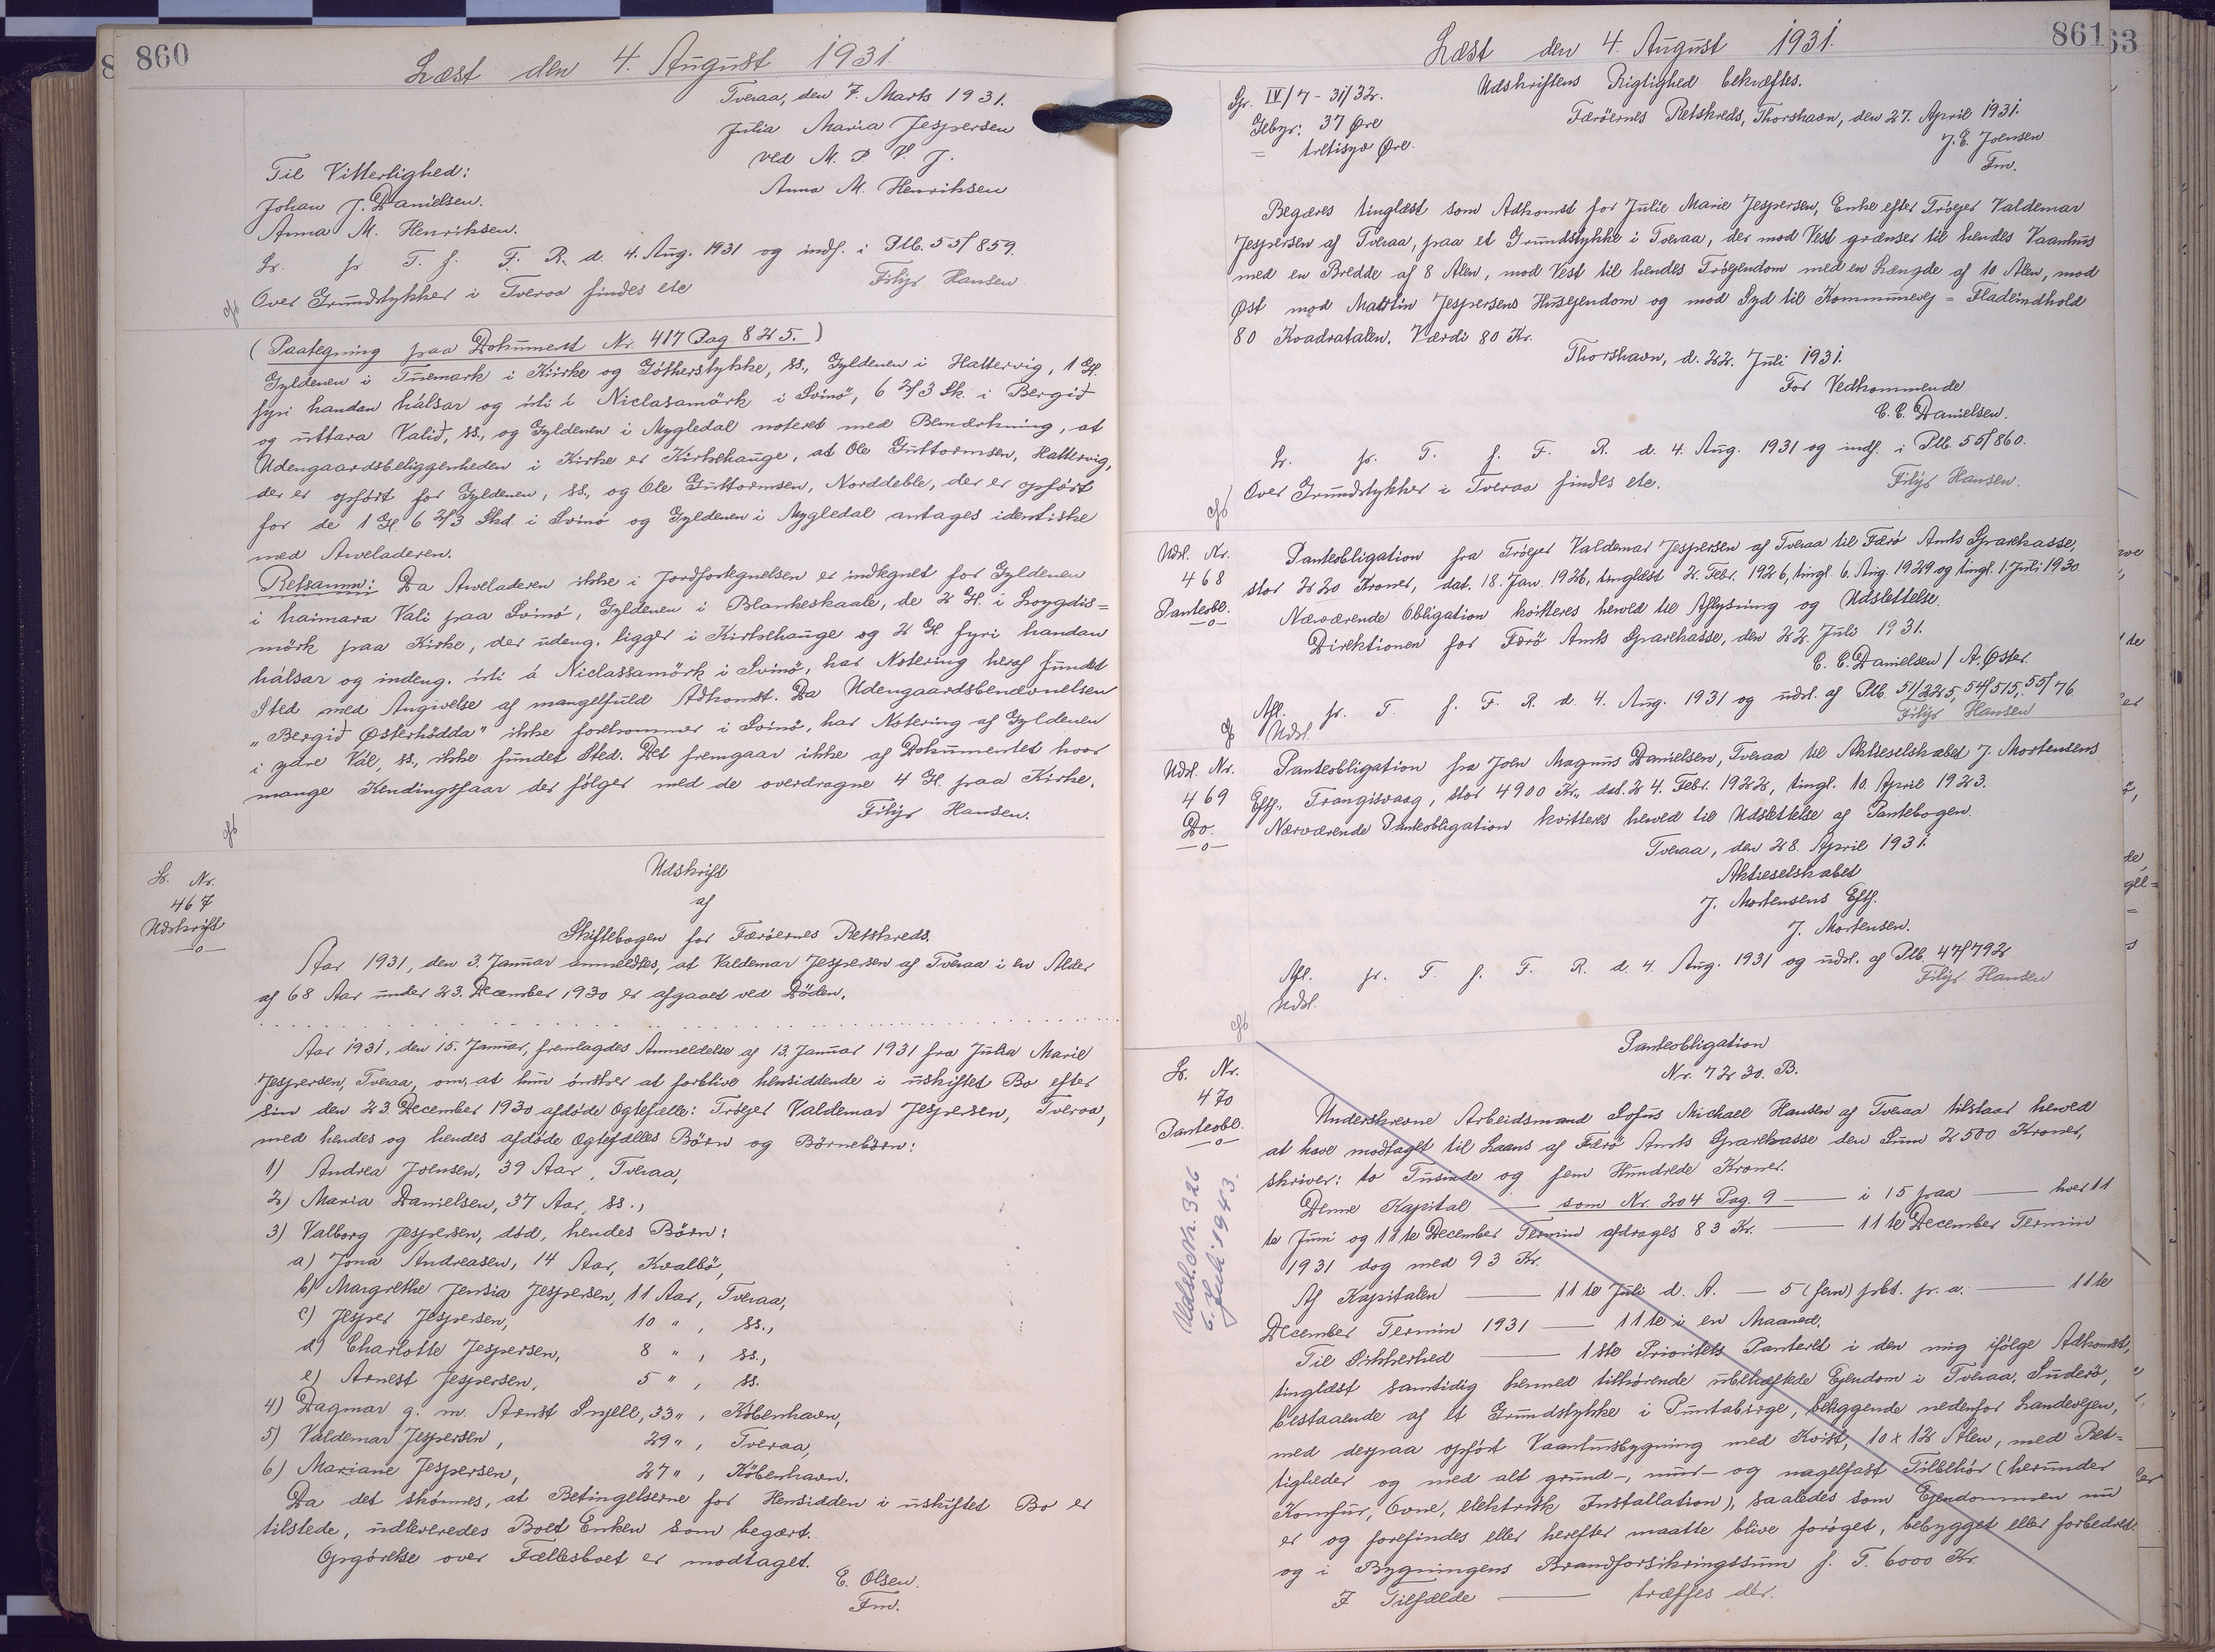 860
Læst den 4. August 1931
Tveraa, den 7. Marts 1931.
Julia Maria Jespersen
ved M. P. V. J.
Anna M. Henriksen
Til Vitterlighed:
Johan J. Danielsen.
Anna M. Henriksen.
Lr. fr. T. f. F. R. d. 4. Aug. 1931 og indf. i Plb. 55/859.
Over Grundstykker i Tveraa findes etc
Filip Hansen
(Paategning paa Dokument Nr. 417 Pag. 825.)
Gyldenen i Tuemark i Kirke og Gótherstykke, ss., Gyldenen i Hattervig, 1 Gl.
fyri handan hálsar og isti i Niclasamörk i Svinö, 6 2/3 Sk. i Bergið
og uttara Valið, ss., og Gyldenen i Mygledal noteret med Bemærkning, at
Udengaardsbeliggenheden i Kirke er Kirkehauge, at Ole Guttormsen, Hattervig,
der er opført for Gyldenen, ss., og Ole Guttormsen, Norddeble, der er opført
for de 1 Gl. 6 2/3 Skd. i Svinö og Gyldenen i Mygledal antages identiske
med Aveladeren.
Retsanm: Da Aveladeren ikke i Jordfortegnelsen er indtegnet for Gyldenen
i haimara Vali paa Svinö, Gyldenen i Blankeskaale, de 2 Gl. i Loygdis=
mörk paa Kirke, der udeng. ligger i Kirkehauge og 2 Gl. fyri handan
hálsar og indeng. isti á Niclassamörk i Svinö, har Notering heraf fundet
Sted med Angivelse af mangelfuld Adkomst. Da Udengaardsbenævnelsen
"Bergið Østerhødda" ikke forekommer i Svinö, har Notering af Gyldenen
i ydre Vál, ss., ikke fundet Sted. Det fremgaar ikke af Dokumentet hvor
mange Kendingsfaar der følger med de overdragne 4 Gl. paa Kirke.
Filip Hansen.
L. Nr.
467
Udskrift
Udskrift
af
Skiftebogen for Færöernes Retskreds.
Aar 1931, den 3. Januar anmeldtes, at Valdemar Jespersen af Tveraa i en Alder
af 68 Aar under 23. December 1930 er afgaaet ved Döden.
Aar 1931, den 15. Januar, fremlagdes Anmeldelse af 13. Januar 1931 fra Julia Marie
Jespersen, Tveraa, om, at hun ónsker at forblive hensiddende i uskiftet Bo efter
sin den 23. December 1930 afdøde Ægtefælle: Tróejer Valdemar Jespersen, Tveraa,
med hendes og hendes afdøde Ægtefælles Börn og Börnebörn:
1) Andrea Joensen, 39 Aar, Tveraa,
2) Maria Danielsen, 37 Aar, ss.,
3) Valborg Jespersen, död, hendes Börn:
a) Jona Andreasen, 14 Aar, Kvalbö,
b) Margrethe Jensia Jespersen, 11 Aar, Tveraa,
c) Jesper Jespersen, 10 " , ss.,
d) Charlotte Jespersen, 8 " , ss.,
e) Arnest Jespersen, 5 " , ss.
4) Dagmar g. m. Arnst Snjell, 33 " , Köbenhavn,
5) Valdemar Jespersen, 29 " , Tveraa,
6) Mariane Jespersen, 27 " , Köbenhavn.
Da det skönnes, at Betingelserne for Hensidden i uskiftet Bo er
tilstede, udleveredes Boet Enken som begært.
Opgörelse over Fællesboet er modtaget.
E. Olsen.
Fm.
861
63
Læst den 4. August 1931.
Gr. IV/7 - 31/32.
Gebyr: 37 Øre
= tretisyv Øre.
Udskriftens Rigtighed bekræftes.
Færöernes Retskreds, Thorshavn, den 27. April 1931.
J. E. Joensen
Fm.
Begæres tinglæst som Adkomst for Julie Marie Jespersen, Enke efter Tróejer Valdemar
Jespersen af Tveraa, paa et Grundstykke i Tveraa, der mod Vest grænser til hendes Vaanhus
med en Bredde af 8 Alen, mod Vest til hendes Tróejendom med en Længde af 10 Alen, mod
Øst mod Martin Jespersens Husejendom og mod Syd til Kommunevej = Fladeindhold
80 Kvadratalen. Værdi 80 Kr.
Thorshavn, d. 22. Juli 1931.
For Vedkommende
C. C. Danielsen.
Lr. fr. T. f. F. R. d. 4. Aug. 1931 og indf. i Plb. 55/860.
Over Grundstykker i Tveraa findes etc.
Filip Hansen.
Udsl. Nr.
468
Panteobl.
Panteobligation fra Tróejer Valdemar Jespersen af Tveraa til Færö Amts Sparekasse,
stor 2220 Kroner, dat. 18. Jan. 1926, tinglæst 2. Febr. 1926, tingl. 6. Aug. 1929 og tingl. 1. Juli 1930
Nærværende Obligation kvitteres herved til Aflysning og Udslettelse.
Direktionen for Færö Amts Sparekasse, den 22. Juli 1931.
C. C. Danielsen / A. Øster.
Afl. fr. T. f. F. R. d. 4. Aug. 1931 og udsl. af Plb. 51/225, 54/515, 55/76
Udsl.
Filip Hansen
Udsl. Nr.
469
Do.
Panteobligation fra Joen Magnus Danielsen, Tveraa til Aktieselskabet J. Mortensens
Eftf., Trangisvaag, stor 4900 Kr., dat. 24. Febr. 1922, tingl. 10. April 1923.
Nærværende Panteobligation kvitteres herved til Udslettelse af Pantebogen.
Tveraa, den 28. April 1931.
Aktieselskabet
J. Mortensens Eftf.
J. Mortensen.
Afl. fr. T. f. F. R. d. 4. Aug. 1931 og udsl. af Plb. 47/792
Udsl.
Filip Hansen
L. Nr.
470
Panteobl.
Udsl. Nr. 326
6. Juli 1943.
Panteobligation
Nr. 7230. B.
Underskrevne Arbeidsmand Sofus Michael Hansen af Tveraa tilstaar herved
at have modtaget til Laans af Færö Amts Sparekasse den Sum 2500 Kroner,
skriver: to Tusinde og fem Hundrede Kroner.
Denne Kapital — som Nr. 204 Pag. 9 — i 15 paa — hver 11
te Juni og 11te December Termin afdrages 83 Kr. — 11te December Termin
1931 dog med 93 Kr.
Af Kapitalen — 11te Juli d. A. — 5 (fem) pct. pr. a. — 11te
December Termin 1931 — 11te i en Maaned.
Til Sikkerhed — 1ste Prioritets Panteret i den mig ifölge Adkomst,
tinglæst samtidig hermed tilhörende ubehæftede Ejendom i Tveraa, Suderö,
bestaaende af et Grundstykke i Puntabirge, beliggende nedenfor Landevejen,
med derpaa opfört Vaanhusbygning med Kvist, 10 x 12 Alen, med Ret=
tigheder og med alt grund-, mur- og nagelfast Tilbehör (herunder
Komfur, Ovne, elektrisk Installation), saaledes som Ejendommen nu
er og forefindes eller herefter maatte blive foröget, bebygget eller forbedret.
og i Bygningens Brandforsikringssum f. T. 6000 Kr.
I Tilfælde — træffes der.